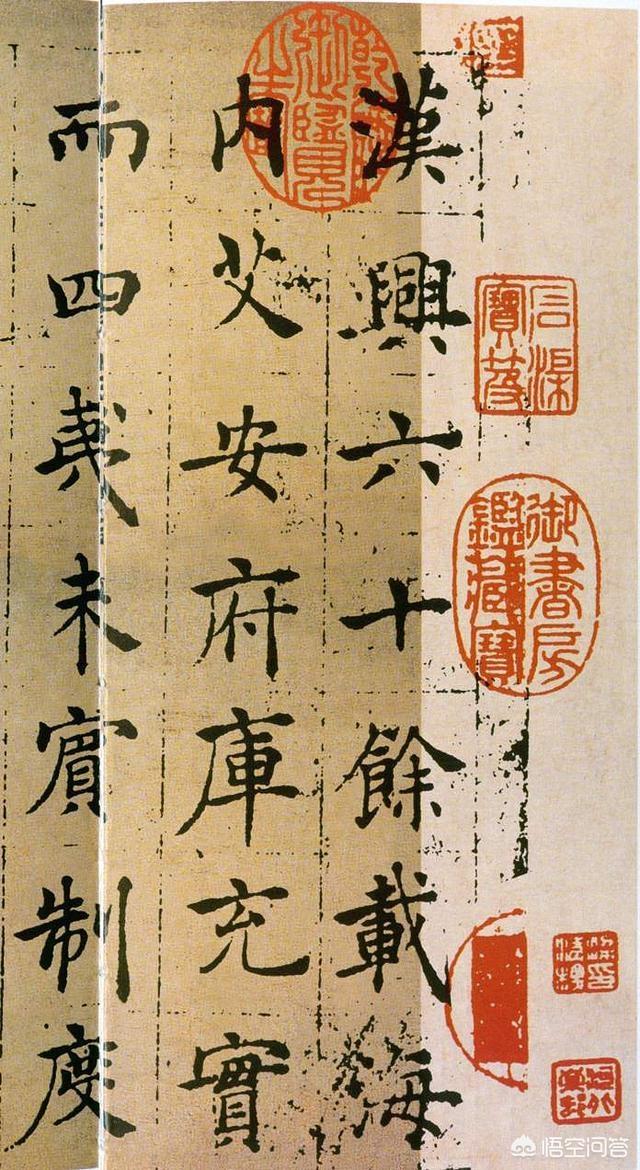 漢興六十餘載海
内艾安府庫充實
而四夷未賓制度
乾隆御覽之寶
石渠寶笈
御書房鑑藏寶
悟空问答